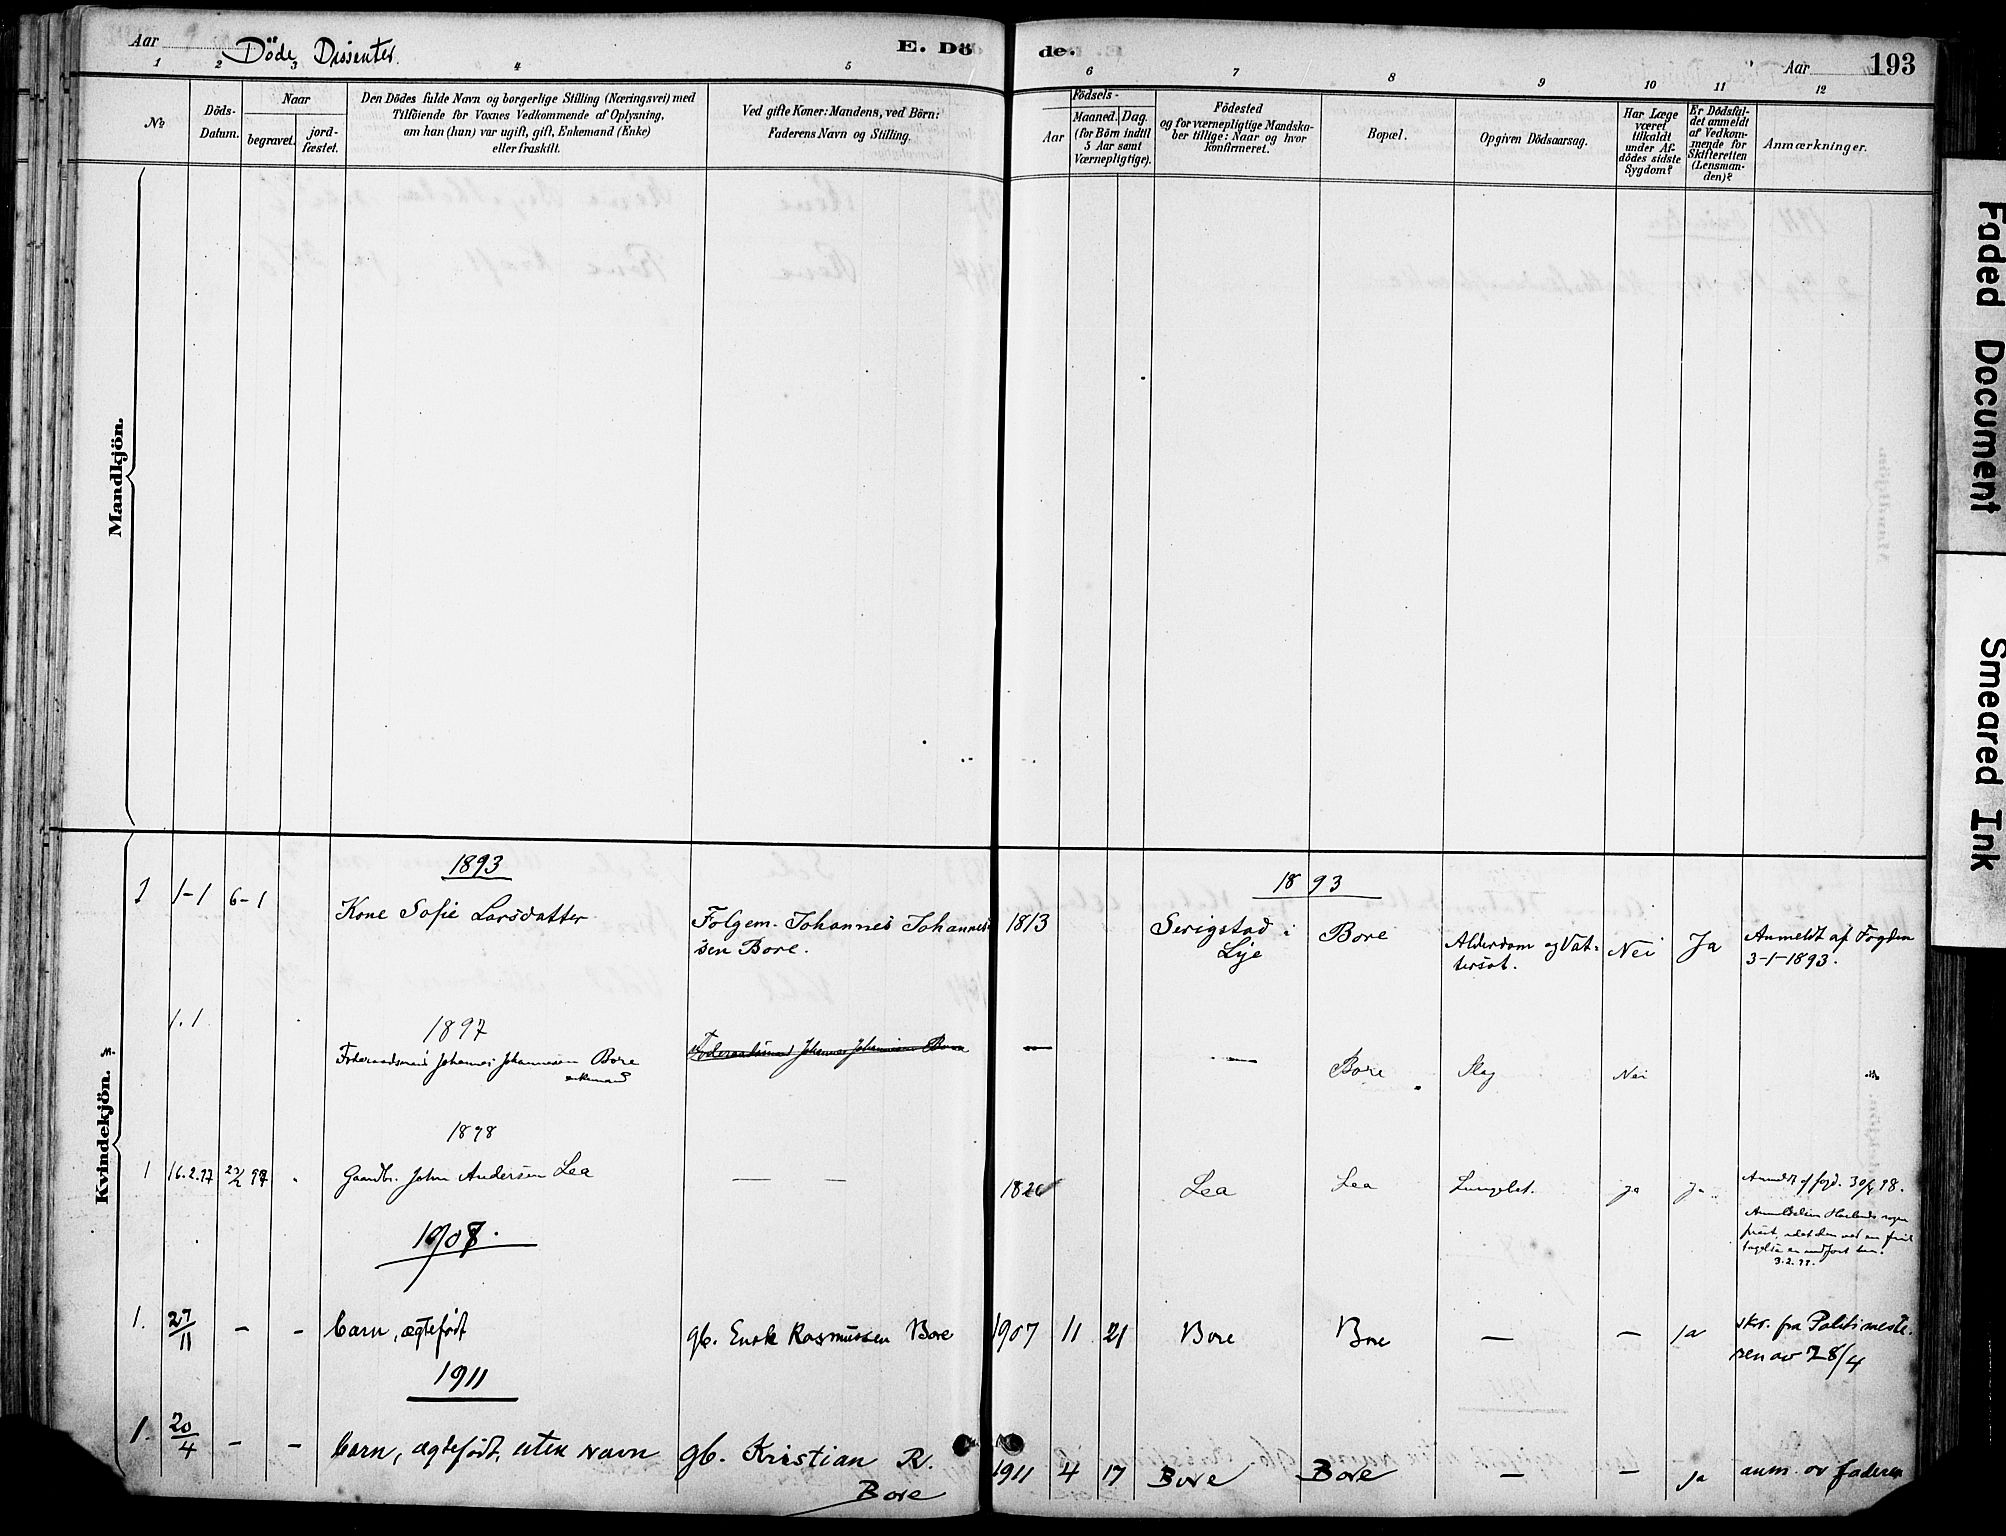 Aar
Döde Disenter.
E. Döde.
Aar
193
1 2 3 4 5 6 7 8 9 10 11 12
№
Döds-Datum.
Naar
begravet.
jord-fæstet.
Den Dödes fulde Navn og borgerlige Stilling (Næringsvei) med
Tilföiende for Voxnes Vedkommende af Oplysning,
om han (hun) var ugift, gift, Enkemand (Enke)
eller fraskilt.
Ved gifte Koner: Mandens, ved Börn:
Faderens Navn og Stilling.
Födsels-
Aar
Maaned.
Dag.
(for Börn indtil
5 Aar samt
Værnepligtige).
Födested
og for værnepligtige Mandska-
ber tillige: Naar og hvor
konfirmeret.
Bopæl.
Opgiven Dödsaarsag.
Har Læge
været
tilkaldt
under Af-
dödes sidste
Sygdom?
Er Dødsfal-
det anmeldt
af Vedkom-
mende for
Skifteretten
(Lensman-
den)?
Anmærkninger.
Mandkjön.
Kvindekjön.
M.
1893
1893
1 1-1 6-1 Kone Sofie Larsdatter Folgem. Johannes Johannes-
sen Bore. 1813 Serigstad i
Lye Bore Alderdom og Vat-
tersot. Nei Ja Anmeldt af Fogden
3-1-1893.
1897
1.1 Føderaadsmand Johannes Johannesen Bore
enkemand Føderaadsmand Johannes Johannesen Bore — — Bore Slag Nei
1898
1 16.2.97 Gaardbr. John Andersen Lea — — Lea Lea ja Ja Anmeldt af fogd. 30/4 98.
3.2.99.
1908.
1. 27/11 — — barn, ægtefødt gb. Enok Rasmussen Bore 1907 11 21 Bore Bore — — ja skr. fra Politimeste-
ren av 28/4
1911
1. 20/4 — — barn, ægtefødt, uten navn gb. Kristian R.
Bore 1911 4 17 Bore Bore — — ja anm. av faderen
Faded Document
Smeared Ink